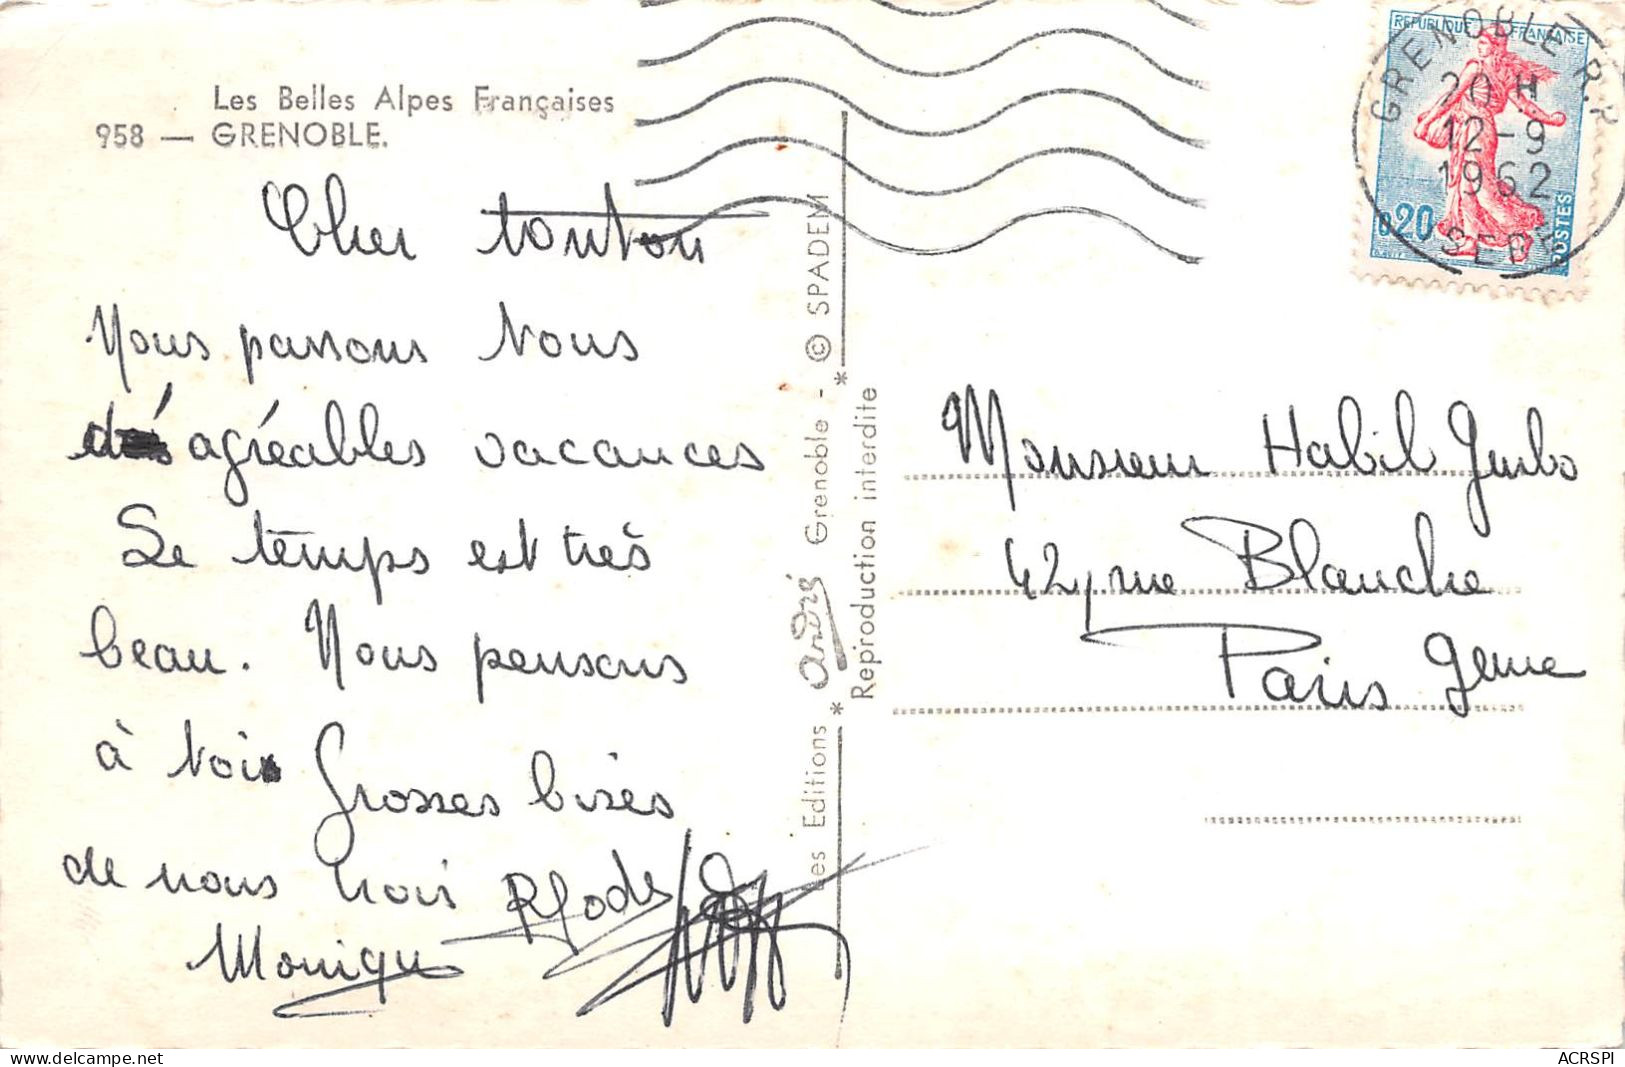 Les Belles Alpes Françaises
958 — GRENOBLE.
Cher tonton
Nous passons tous
agréables vacances
Le temps est très
beau. Nous pensons
à toi Grosses bises
de nous trois
Monique
Les Editions * André Grenoble - © SPADEM *
Reproduction interdite
REPUBLIQUE FRANÇAISE
0,20
POSTES
GRENOBLE R.P.
20 H
12-9
1962
Monsieur Habib
42, rue Blanche
Paris 9eme
delcampe.net
ACRSPI